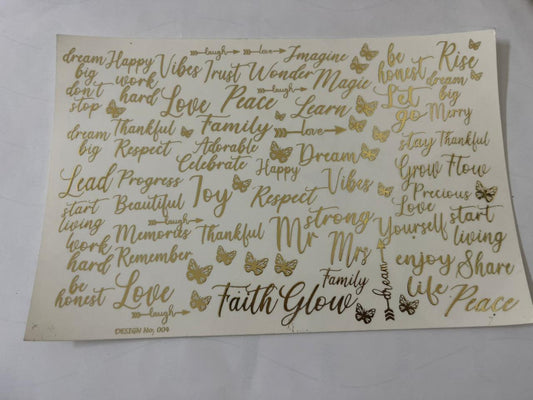 dream big
Happy
laugh
love
Imagine
be honest
Rise
don't stop
work hard
Vibes
Trust
Wonder
Magic
dream big
Love
Peace
laugh
Learn
Let go
Merry
dream big
Thankful
Family
love
stay
Thankful
Respect
Adorable
Celebrate
Happy
Dream
Grow
Flow
Lead
Progress
Joy
Respect
Vibes
Precious
start living
Beautiful
Love
Yourself
start living
laugh
Memories
Thankful
Mr
strong
Mrs
work hard
Remember
enjoy life
Share
be honest
Love
laugh
Faith
Glow
Family
dream
Peace
DESIGN No, 004